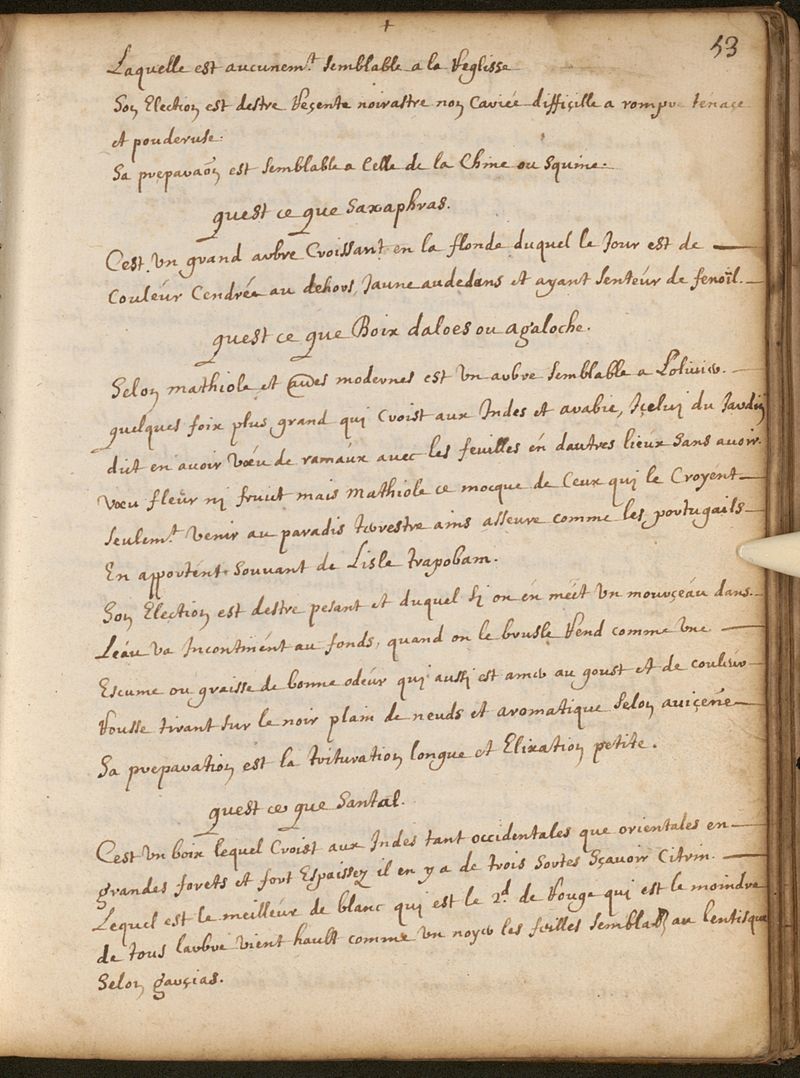 +
53
Laquelle est aucunem.t semblable a la Reglisse
Son Election est destre Reçente noirastre non Cariée diffiçille a rompre tenaçe
et pouderuse.
Sa preparaōn est semblable a Celle de la Chine ou Squine.
quest ce que Saxaphras.
Cest Un grand arbre Croissant en la flonde duquel le Jour est de
Couleur Cendrée au dehors, Jaune audedans et ayant senteur de fenoïl.
quest ce que Boix daloes ou agaloche.
Selon mathiole et aūes modernes est Un arbre semblable a Loliuier.
quelques foix plus grand qui Croist aux Indes et arabie, Içeluj du Jardin
dict en auoir Vœu de rameaux auec les feuilles en dautres lieux sans auoir
Vœu fleur nj fruict mais mathiole ce mocque de Ceux qui le Croyent
seulem.t Venir au paradis terrestre ains asseure comme les portugails
En apportent souuant de Lisle trapobam.
Son Election est destre pesant et duquel sj on en mëet Un mourçeau dans
Leau Va Incontinent au fonds, quand on le brusle Rend comme Vne
Escume ou graisse de bonne odeur qui aussj est amer au goust et de couleur
Rousse tirant sur le noir plain de neuds et aromatique selon auiçene
Sa preparation est la trituration longue et Elixation petite.
quest ce que Santal.
Cest Un boix lequel Croist aux Indes tant occidentales que orientales en
grandes forets et fort Espaissez il en y a de trois sortes sçauoir Citrin.
Lequel est le meilleur de blanc qui est le 2.d de Rouge qui est le moindre
de tous larbre vient hault comme un noyer les feilles semblab au lentisque
Selon garçias.